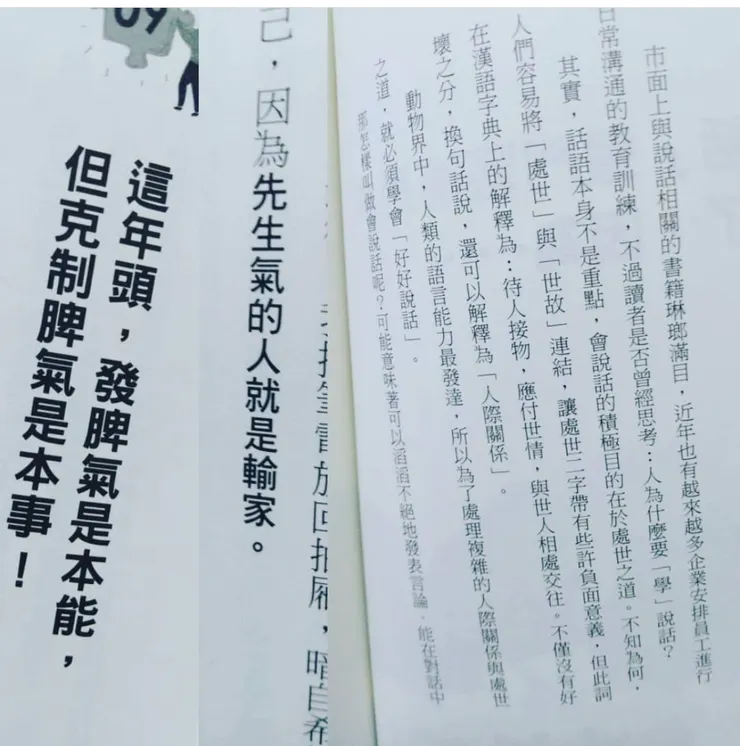 09
這年頭,發脾氣是本能,
但克制脾氣是本事!
放回抽屜,暗自希
己,因為先生氣的人就是輸家。
市面上與說話相關的書籍琳瑯滿目,近年也有越來越多企業安排員工進行
日常溝通的教育訓練,不過讀者是否曾經思考:人為什麼要「學」說話?
其實,話語本身不是重點,會說話的積極目的在於處世之道。不知為何,
人們容易將「處世」與「世故」連結,讓處世二字帶有些許負面意義,但此詞
在漢語字典上的解釋為:待人接物,應付世情,與世人相處交往。不僅沒有好
壞之分,換句話說,還可以解釋為「人際關係」。
動物界中,人類的語言能力最發達,所以為了處理複雜的人際關係與處世
之道,就必須學會「好好說話」。
那怎樣叫做會說話呢?可能意味著可以滔滔不絕地發表言論,能在對話中